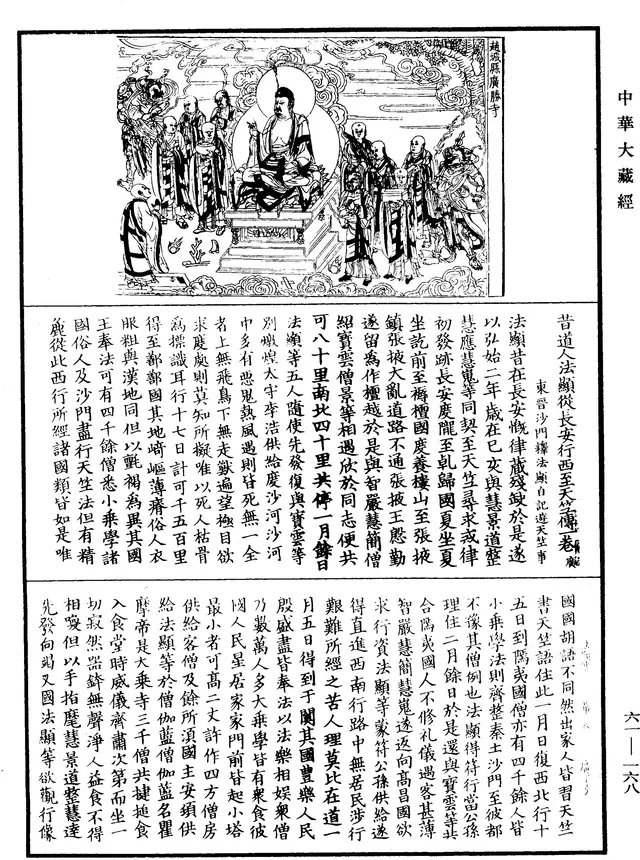 中華大藏經
趙城縣廣勝寺
昔道人法顯從長安行西至天竺傳一卷 廣
東晉沙門釋法顯自記遊天竺事
法顯昔在長安慨律藏殘缺於是遂
以弘始二年歲在己亥與慧景道整
慧應慧嵬等同契至天竺尋求戒律
初發跡長安度隴至乹歸國夏坐夏
坐訖前至褥檀國度養樓山至張掖
鎮張掖大亂道路不通張掖王慇勤
遂留為作檀越於是與智嚴慧簡僧
紹寶雲僧景等相遇欣於同志便共
可八十里南北四十里共停一月餘日
法顯等五人隨使先發復與寶雲等
別燉煌太守李浩供給度沙河沙河
中多有惡鬼熱風遇則皆死無一全
者上無飛鳥下無走獸遍望極目欲
求度處則莫知所擬唯以死人枯骨
為摽識耳行十七日計可千五百里
得至鄯鄯國其地崎嶇薄瘠俗人衣
服粗與漢地同但以氈褐為異其國
王奉法可有四千餘僧悉小乘學諸
國俗人及沙門盡行天竺法但有精
麁從此西行所經諸國類皆如是唯
國國胡語不同然出家人皆習天竺
書天竺語住此一月日復西北行十
五日到隝夷國僧亦有四千餘人皆
小乘學法則齊整秦土沙門至彼都
不像其僧例也法顯得符行當公孫
理住二月餘日於是還與寶雲等共
合隝夷國人不修礼儀遇客甚薄
智嚴慧簡慧嵬遂返向髙昌國欲
求行資法顯等蒙符公孫供給遂
得直進西南行路中無居民涉行
艱難所經之苦人理莫比在道一
月五日得到于闐其國豊樂人民
殷盛盡皆奉法以法樂相娛衆僧
乃數萬人多大乘學皆有衆食彼
國人民星居家家門前皆起小塔
最小者可髙二丈許作四方僧房
供給客僧及餘所須國主安頓供
給法顯等於僧伽藍僧伽藍名瞿
摩帝是大乘寺三千僧共揵搥食
入食堂時威儀齊肅次第而坐一
切寂然器鉢無聲淨人益食不得
相喚但以手指麾慧景道整慧達
先發向竭叉國法顯等欲觀行像
六一—一六八